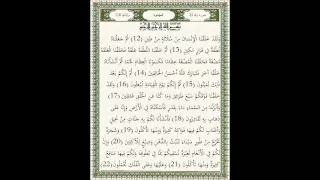 وَلَقَدْ خَلَقْنَا الْإِنْسَانَ مِنْ سُلَالَةٍ مِنْ طِينٍ (12) ثُمَّ جَعَلْنَاهُ
نُطْفَةً فِي قَرَارٍ مَكِينٍ (13) ثُمَّ خَلَقْنَا النُّطْفَةَ عَلَقَةً فَخَلَقْنَا الْعَلَقَةَ
مُضْغَةً فَخَلَقْنَا الْمُضْغَةَ عِظَامًا فَكَسَوْنَا الْعِظَامَ لَحْمًا ثُمَّ أَنْشَأْنَاهُ
خَلْقًا آخَرَ فَتَبَارَكَ اللَّهُ أَحْسَنُ الْخَالِقِينَ (14) ثُمَّ إِنَّكُمْ بَعْدَ
ذَلِكَ لَمَيِّتُونَ (15) ثُمَّ إِنَّكُمْ يَوْمَ الْقِيَامَةِ تُبْعَثُونَ (16) وَلَقَدْ
خَلَقْنَا فَوْقَكُمْ سَبْعَ طَرَائِقَ وَمَا كُنَّا عَنِ الْخَلْقِ غَافِلِينَ (17)
وَأَنْزَلْنَا مِنَ السَّمَاءِ مَاءً بِقَدَرٍ فَأَسْكَنَّاهُ فِي الْأَرْضِ وَإِنَّا عَلَى
ذَهَابٍ بِهِ لَقَادِرُونَ (18) فَأَنْشَأْنَا لَكُمْ بِهِ جَنَّاتٍ مِنْ نَخِيلٍ
وَأَعْنَابٍ لَكُمْ فِيهَا فَوَاكِهُ كَثِيرَةٌ وَمِنْهَا تَأْكُلُونَ (19) وَشَجَرَةً
تَخْرُجُ مِنْ طُورِ سَيْنَاءَ تَنْبُتُ بِالدُّهْنِ وَصِبْغٍ لِلْآكِلِينَ (20)
وَإِنَّ لَكُمْ فِي الْأَنْعَامِ لَعِبْرَةً نُسْقِيكُمْ مِمَّا فِي بُطُونِهَا وَلَكُمْ فِيهَا مَنَافِعُ
كَثِيرَةٌ وَمِنْهَا تَأْكُلُونَ (21) وَعَلَيْهَا وَعَلَى الْفُلْكِ تُحْمَلُونَ (22)